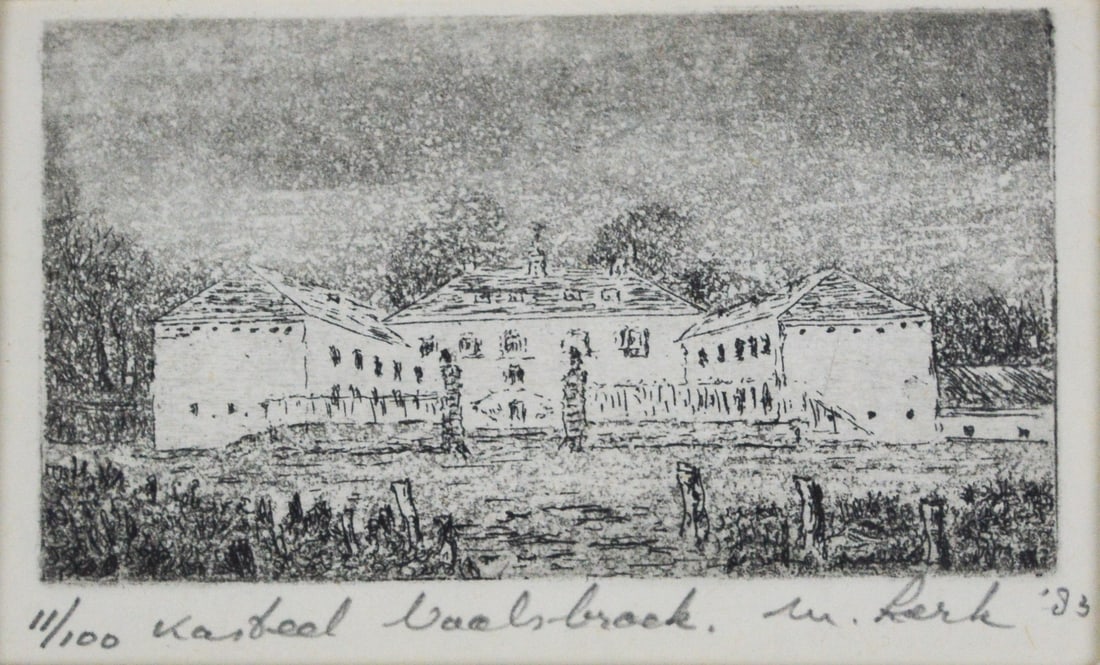 11/100 Kasteel Vaalsbroek. M. Lerk '83